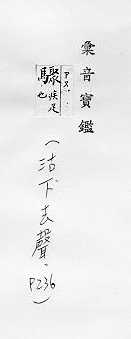 彙音寶鑑
驟 疾足也
(沽下去聲,P236)